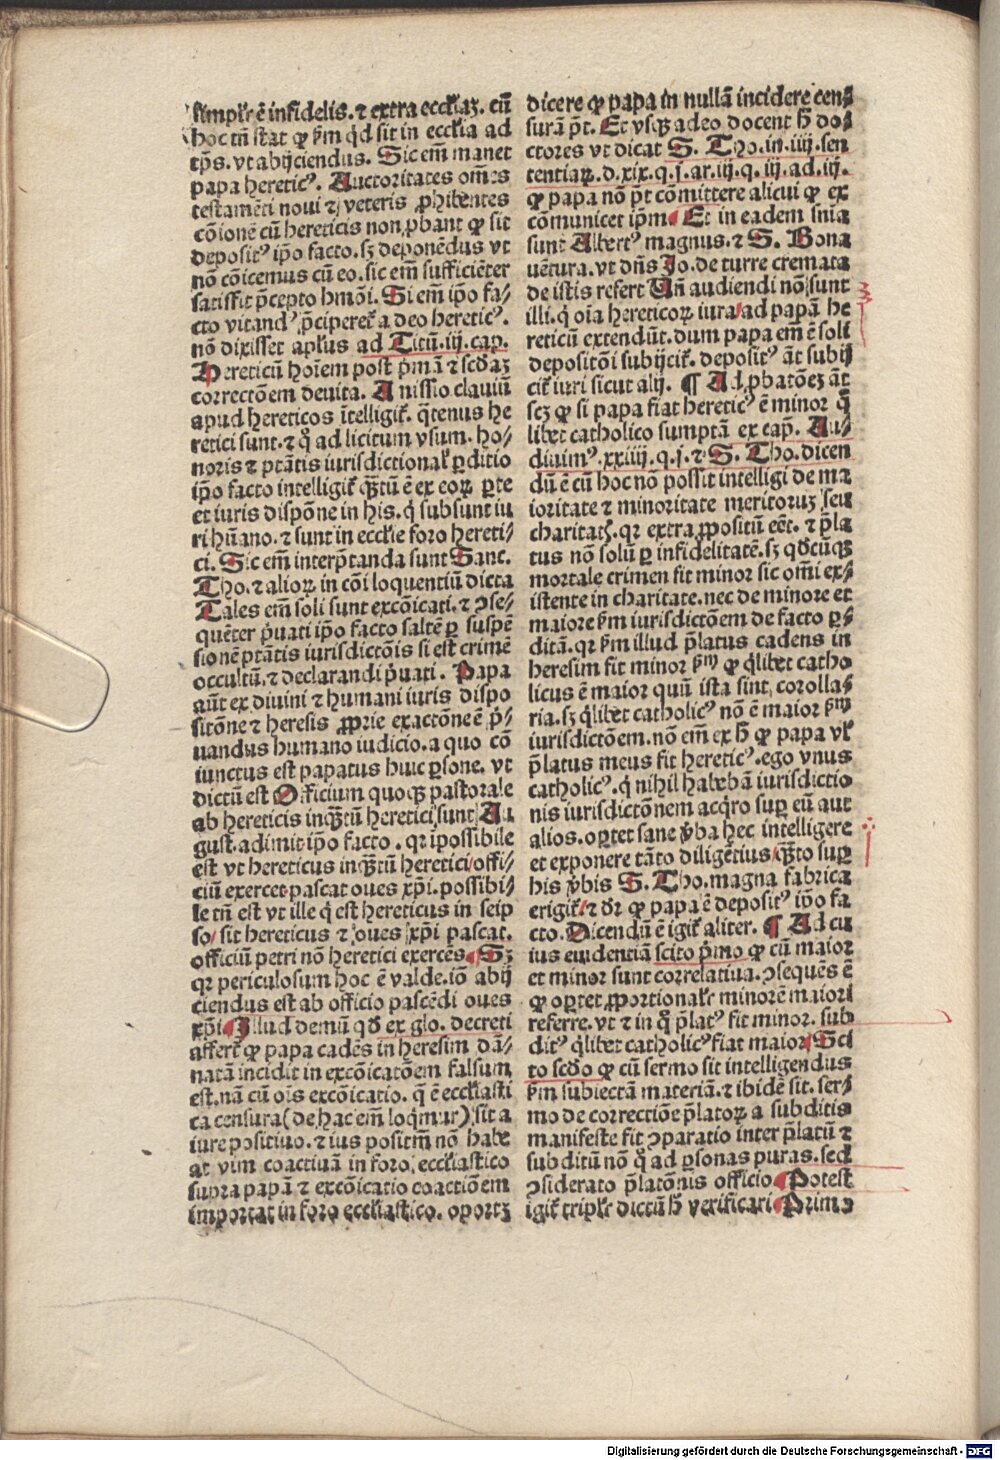 simpłr ē infidelis. ⁊ extra eccłiaꝫ. cū
hoc tn̄ stat ꝙ ẜm q̇d sit in eccłia ad
tp̄s. vt abijciendus. Sic em̄ manet
papa heretic⁹. Auctoritates om̄es
testamēti noui ⁊ veteris ꝓhibentes
cōionē cū hereticis non ꝓbant ꝙ sit
deposit⁹ ip̄o facto. sꝫ deponēdus vt
nō cōicemus cū eo. sic em̄ sufficiēter
satisfit p̄cepto hmōi. Si em̄ ip̄o fa⸗
cto vitand⁹ p̄ciperet̄ a deo heretic⁹.
nō dixisset apłus ad Titū. iij. cap.
Hereticū hoīem post p̄mā ⁊ scd̄aꝫ
correctōem deuita. Amissio clauiū
apud hereticos ītelligit̄. q̄tenus he
retici sunt. ⁊ q̊ ad licitum vsum. ho⸗
noris ⁊ ptātis iurisdictional̄ ꝑditio
ip̄o facto intelligit̄ qꝫtū ē ex eoꝝ ꝑte
et iuris dispōne in his. q̇ subsunt iu
ri hūano. ⁊ sunt in eccłie foro hereti⸗
ci. Sic em̄ interp̄tanda sunt Sanc.
Tho. ⁊ alioꝝ in cōi loquentiū dicta
Tales em̄ soli sunt excōicati. ⁊ ꝯse⸗
quēter ṗuati ip̄o facto saltē ꝑ suspē
sionē ptātis iurisdictōis si est crimē
occultū. ⁊ declarandi ṗuati. Papa
aūt ex diuini ⁊ humani iuris dispo
sitōne ⁊ heresis ꝓprie exactōne ē ṗ⸗
uandus humano iudicio. a quo cō
iunctus est papatus huic ꝑsone. vt
dictū est Officium quoqꝫ pastorale
ab hereticis inqꝫtū heretici sunt Au
gust. adimit ip̄o facto. qꝛ ipossibile
est vt hereticus inqꝫtū heretici offi⸗
ciū exercet pascat oues xp̄i. possibi⸗
le tn̄ est vt ille q̇ est hereticus in seip
so/ sit hereticus ⁊ oues xp̄i pascat.
officiū petri nō heretici exercēs. Sꝫ
qꝛ periculosum hoc ē valde. iō abij
ciendus est ab officio pascēdi oues
xp̄i. Illud demū qd̄ ex glo. decreti
affert̄ ꝙ papa cadēs in heresim dā⸗
natā incidit in excōicatōem falsum
est. nā cū oīs excōicatio. q̄ ē eccłiasti
ca censura (de hac em̄ loq̇mur) sit a
iure positiuo. ⁊ ius positiū nō habe
at vim coactiuā in foro eccłiastico
supra papā ⁊ excōicatio coactiōem
importat in foro eccłiastico. oportꝫ
dicere ꝙ papa in nullā incidere cen⸗
surā pt̄. Et vsqꝫ adeo docent h̄ do⸗
ctores vt dicat S. Tho. in. iiij. sen
tentiaꝝ. d. xix. q. j. ar. iij. q. iij. ad. iij.
ꝙ papa nō pt̄ cōmittere alicui ꝙ ex
cōmunicet ip̄m. Et in eadem snīa
sunt Albert⁹ magnus. ⁊ S. Bona
uētura. vt dn̄s Jo. de turre cremata
de istis refert Uñ audiendi nō sunt
illi. q̇ oīa hereticoꝝ iura/ad papā he
reticū extendūt. dum papa em̄ ē soli
depositōi subijcit̄. deposit⁹ āt subij
cit̄ iuri sicut alij. ¶ Ad ꝓbatōeꝫ āt
scꝫ ꝙ si papa fiat heretic⁹ ē minor q̊
libet catholico sumptā ex cap. Au⸗
diuim⁹. xxiiij. q. j. ⁊ S. Tho. dicen
dū ē cū hoc nō possit intelligi de ma
ioritate ⁊ minoritate meritoruꝫ seu
charitatꝭ. qꝛ extra ꝓpositū eēt. ⁊ p̄la
tus nō solū ꝑ infidelitatē. sꝫ qd̄cūqꝫ
mortale crimen fit minor sic om̄i ex⸗
istente in charitate. nec de minore et
maiore ẜm iurisdictōem de facto ꝑ⸗
ditā. qꝛ ẜm illud p̄latus cadens in
heresim fit minor ẜm ꝙ q̇libet catho
licus ē maior quū ista sint, corolla⸗
ria. sꝫ q̇libet catholic⁹ nō ē maior ẜm
iurisdictōem. nō em̄ ex h̄ ꝙ papa vł
p̄latus meus fit heretic⁹. ego vnus
catholic⁹. q̇ nihil habebā iurisdictio
nis iurisdictōnem acq̇ro suꝑ eū aut
alios. oꝑtet sane v̄ba hec intelligere
et exponere tāto diligētius qꝫto suꝑ
his v̄bis S. Tho. magna fabrica
erigit̄/ ⁊ dr̄ ꝙ papa ē deposit⁹ ip̄o fa
cto. Dicendū ē igit̄ aliter. ¶ Ad cu
ius euidentiā scito p̄mo ꝙ cū maior
et minor sunt correlatiua. ꝯsequēs ē
ꝙ oꝑtet ꝓportionałr minorē maiori
referre. vt ⁊ in q̊ p̄lat⁹ fit minor. sub
dit⁹ q̇libet catholic⁹ fiat maior Sci
to scd̄o ꝙ cū sermo sit intelligendus
ẜm subiectā materiā. ⁊ ibidē sit. ser⸗
mo de correctiōe p̄latoꝝ a subditis
manifeste fit ꝯparatio inter p̄latū ⁊
subditū nō q̊ ad ꝑsonas puras. sed
ꝯsiderato p̄latōnis officio. Potest
igit̄ tripłr dictū h̄ verificari Primo
Digitalisierung gefördert durch die Deutsche Forschungsgemeinschaft - DFG